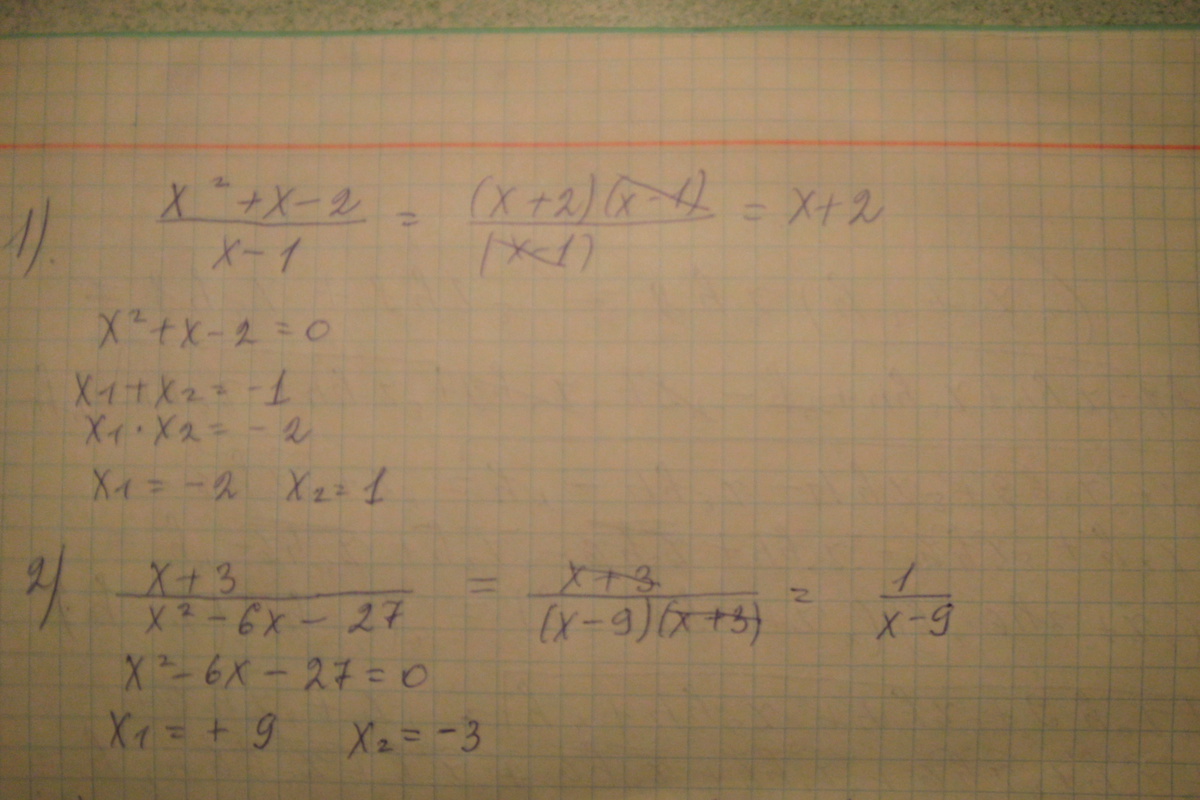 1). (x² + x - 2)/(x - 1) = ((x + 2)(x - 1))/((x - 1)) = x + 2
x² + x - 2 = 0
x1 + x2 = -1
x1 · x2 = - 2
x1 = - 2 x2 = 1
2) (x + 3)/(x² - 6x - 27) = (x + 3)/((x - 9)(x + 3)) = 1/(x - 9)
x² - 6x - 27 = 0
x1 = + 9 x2 = -3